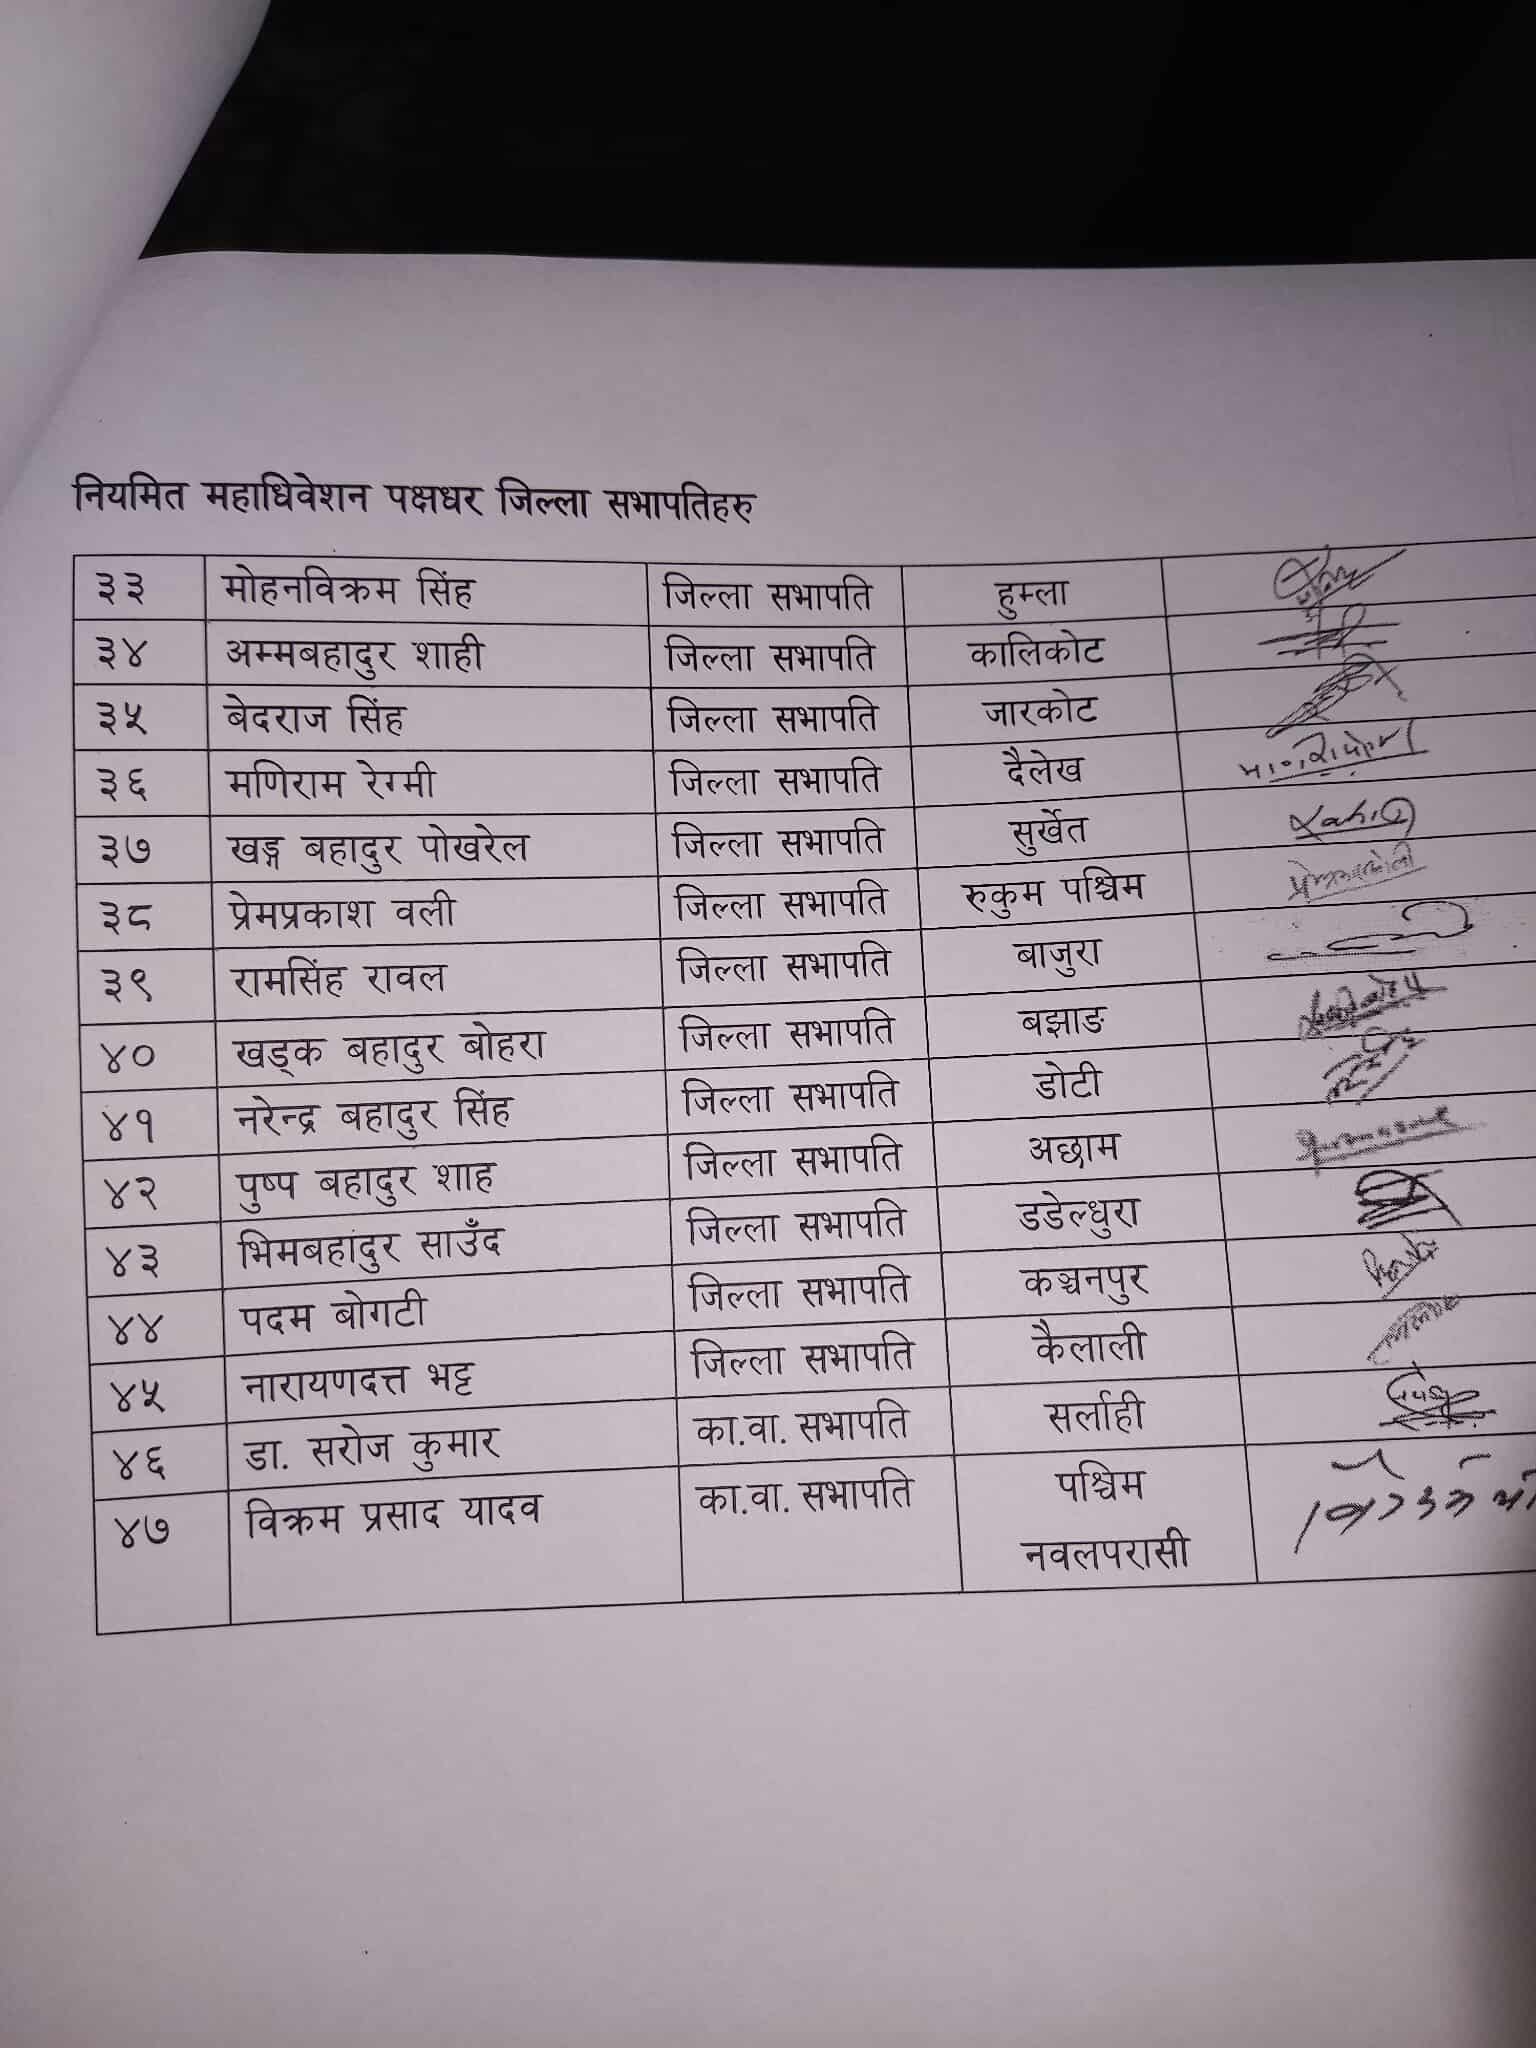 नियमित महाधिवेशन पक्षधर जिल्ला सभापतिहरु
३३ मोहनविक्रम सिंह जिल्ला सभापति हुम्ला
३४ अम्मबहादुर शाही जिल्ला सभापति कालिकोट
३५ बेदराज सिंह जिल्ला सभापति जारकोट
३६ मणिराम रेग्मी जिल्ला सभापति दैलेख
३७ खड्ग बहादुर पोखरेल जिल्ला सभापति सुर्खेत
३८ प्रेमप्रकाश वली जिल्ला सभापति रुकुम पश्चिम
३९ रामसिंह रावल जिल्ला सभापति बाजुरा
४० खड्क बहादुर बोहरा जिल्ला सभापति बझाङ
४१ नरेन्द्र बहादुर सिंह जिल्ला सभापति डोटी
४२ पुष्प बहादुर शाह जिल्ला सभापति अछाम
४३ भिमबहादुर साउँद जिल्ला सभापति डडेल्धुरा
४४ पदम बोगटी जिल्ला सभापति कञ्चनपुर
४५ नारायणदत्त भट्ट जिल्ला सभापति कैलाली
४६ डा. सरोज कुमार का.वा. सभापति सर्लाही
४७ विक्रम प्रसाद यादव का.वा. सभापति पश्चिम
नवलपरासी